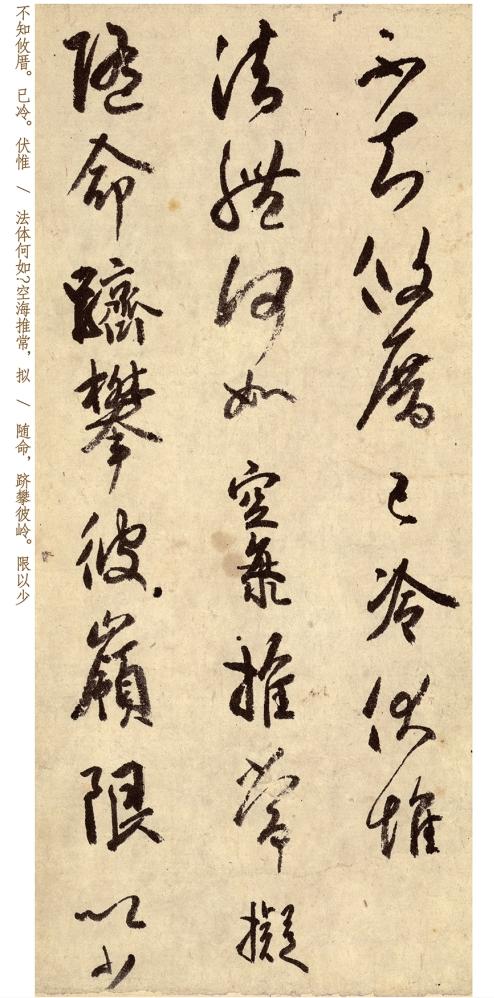 不知攸厝。已冷。伏惟 / 法体何如?空海推常，拟 / 随命，跻攀彼岭。限以少
不知攸厝已冷伏惟
法體何如空海推常擬
隨命躋攀彼嶺限以少